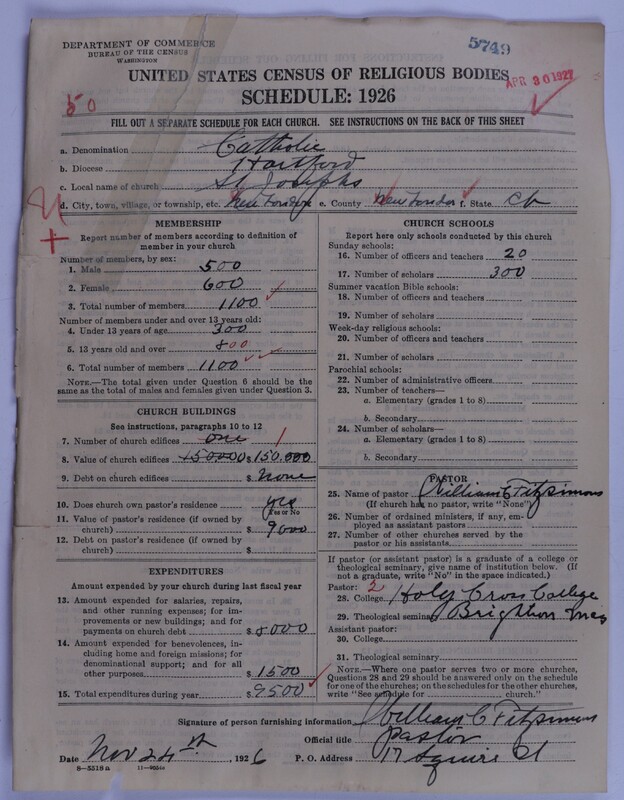 DEPARTMENT OF COMMERCE
BUREAU OF THE CENSUS
WASHINGTON
5749
UNITED STATES CENSUS OF RELIGIOUS BODIES
APR 30 1927
50
SCHEDULE: 1926
FILL OUT A SEPARATE SCHEDULE FOR EACH CHURCH. SEE INSTRUCTIONS ON THE BACK OF THIS SHEET
a. Denomination Catholic
b. Diocese Hartford
c. Local name of church St Josephs
d. City, town, village, or township, etc. New London e. County New London f. State Ct
MEMBERSHIP
Report number of members according to definition of
member in your church
Number of members, by sex:
1. Male 500
2. Female 600
3. Total number of members 1100
Number of members under and over 13 years old:
4. Under 13 years of age 300
5. 13 years old and over 800
6. Total number of members 1100
NOTE.—The total given under Question 6 should be
same as the total of males and females given under Question 3.
CHURCH BUILDINGS
See instructions, paragraphs 10 to 12
7. Number of church edifices one 1
8. Value of church edifices 150000 $ 150.000
9. Debt on church edifices $ None
10. Does church own pastor's residence yes
Yes or No
11. Value of pastor's residence (if owned by
church) $ 9000
12. Debt on pastor's residence (if owned by
church) $
EXPENDITURES
Amount expended by your church during last fiscal year
13. Amount expended for salaries, repairs,
and other running expenses; for im-
provements or new buildings; and for
payments on church debt $ 8000
14. Amount expended for benevolences, in-
cluding home and foreign missions; for
denominational support; and for all
other purposes $ 1500
15. Total expenditures during year $ 9500
CHURCH SCHOOLS
Report here only schools conducted by this church
Sunday schools:
16. Number of officers and teachers 20
17. Number of scholars 300
Summer vacation Bible schools:
18. Number of officers and teachers
19. Number of scholars
Week-day religious schools:
20. Number of officers and teachers
21. Number of scholars
Parochial schools:
22. Number of administrative officers
23. Number of teachers—
a. Elementary (grades 1 to 8)
b. Secondary
24. Number of scholars—
a. Elementary (grades 1 to 8)
b. Secondary
PASTOR
25. Name of pastor William C Fitzsimons
(If church has no pastor, write "None")
26. Number of ordained ministers, if any, em-
ployed as assistant pastors
27. Number of other churches served by the
pastor or his assistants
If pastor (or assistant pastor) is a graduate of a college or
theological seminary, give name of institution below. (If
not a graduate, write "No" in the space indicated.)
Pastor: 2
28. College Holy Cross College
29. Theological seminary Brighton Mas
Assistant pastor:
30. College
31. Theological seminary
NOTE.—Where one pastor serves two or more churches,
Questions 28 and 29 should be answered only on the schedule
for one of the churches; on the schedules for the other churches,
write "See schedule for church."
Signature of person furnishing information William C Fitzsimons
Official title Pastor
Date Nov 24th, 1926 P. O. Address 17 Squire St
8—5318a 11—9524a